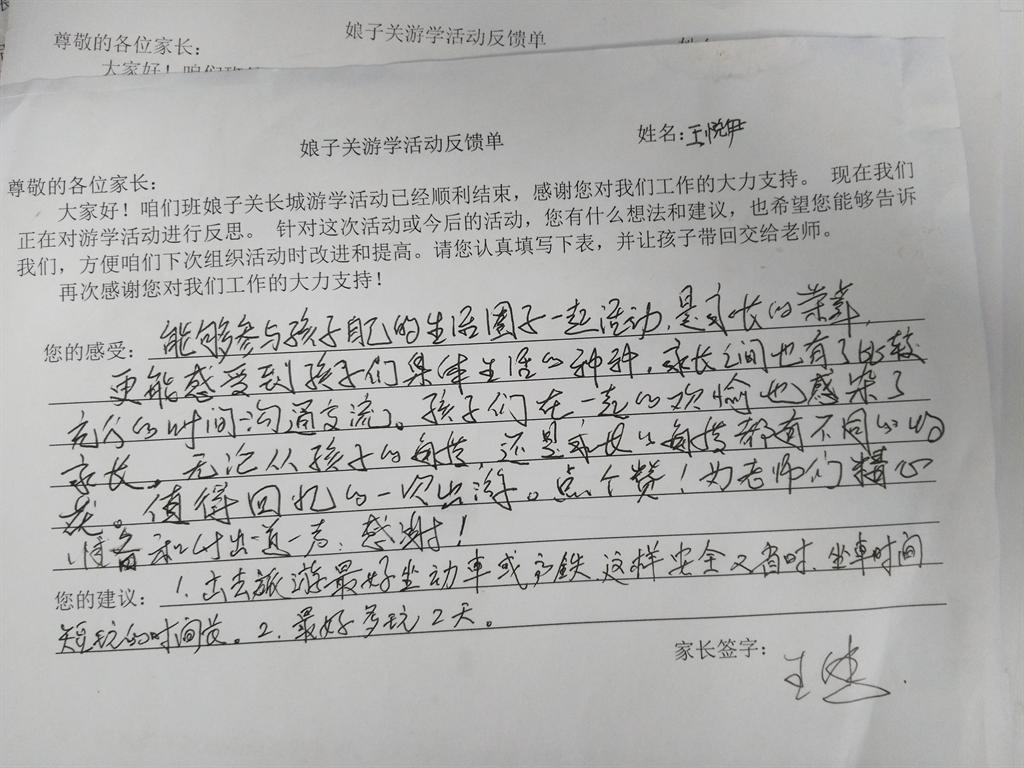 娘子关游学活动反馈单
尊敬的各位家长：
大家好！咱们班
娘子关游学活动反馈单
姓名：王悦
尊敬的各位家长：
大家好！咱们班娘子关长城游学活动已经顺利结束，感谢您对我们工作的大力支持。 现在我们
正在对游学活动进行反思。 针对这次活动或今后的活动，您有什么想法和建议，也希望您能够告诉
我们，方便咱们下次组织活动时改进和提高。请您认真填写下表，并让孩子带回交给老师。
再次感谢您对我们工作的大力支持！
您的感受：能够参与孩子自己的生活圈子一起活动，是家长的荣幸，
更能感受到孩子们集体生活的种种，家长之间也有了比较
充分的时间沟通交流。孩子们在一起的欢愉也感染了
家长。无论从孩子的角度，还是家长的角度都有不同的收
获。值得回忆的一次出游。点个赞！为老师们精心
准备和付出道一声：感谢！
您的建议：1.出去旅游最好坐动车或高铁，这样安全又省时，坐车时间
短玩的时间长。2.最好多玩2天。
家长签字：王